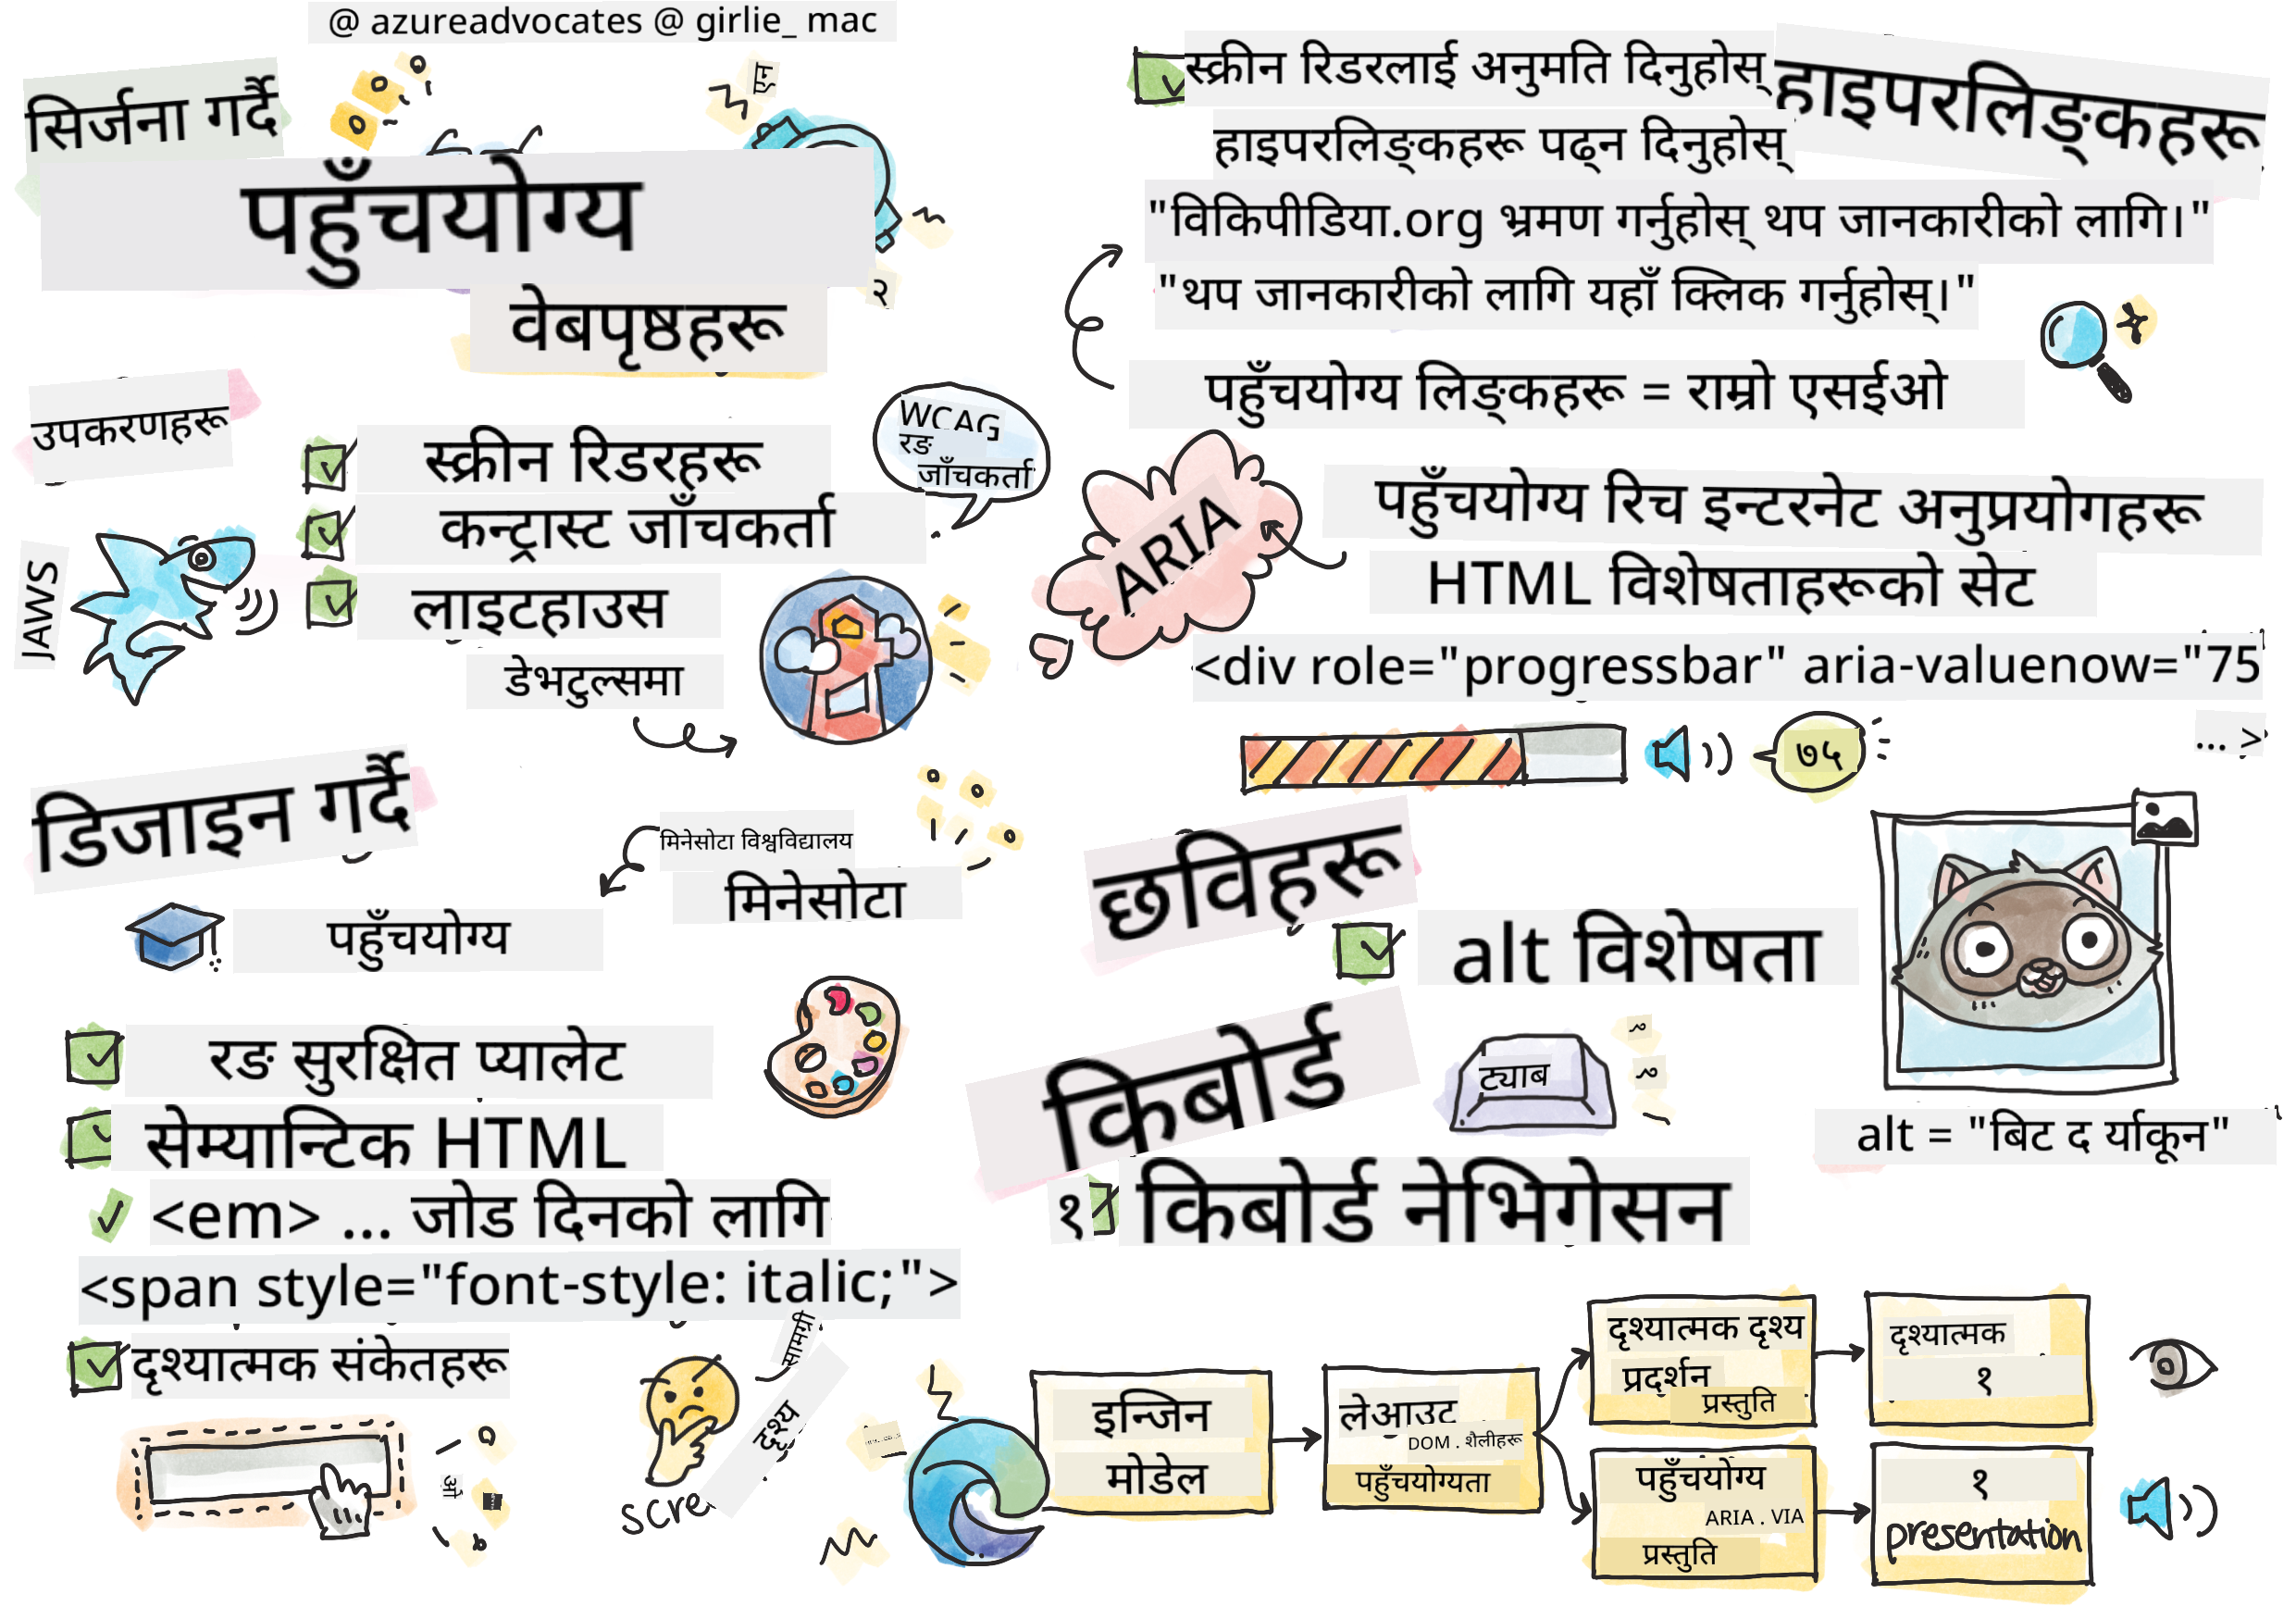 @ azureadvocates @ girlie_ mac
सिर्जना गर्दै
एन
पहुँचयोग्य
२
वेबपृष्ठहरू
उपकरणहरू
स्क्रीन रिडरहरू
कन्ट्रास्ट जाँचकर्ता
लाइटहाउस
डेभटुल्समा
WCAG
रङ
जाँचकर्ता
JAWS
डिजाइन गर्दै
मिनेसोटा विश्वविद्यालय
मिनेसोटा
पहुँचयोग्य
रङ सुरक्षित प्यालेट
सेम्यान्टिक HTML
<em> ... जोड दिनको लागि
<span style="font-style: italic;">
दृश्यात्मक संकेतहरू
ओ
सामग्री
दृश्य
हाइपरलिङ्कहरू
स्क्रीन रिडरलाई अनुमति दिनुहोस्
हाइपरलिङ्कहरू पढ्न दिनुहोस्
"विकिपीडिया.org भ्रमण गर्नुहोस् थप जानकारीको लागि।"
"थप जानकारीको लागि यहाँ क्लिक गर्नुहोस्।"
पहुँचयोग्य लिङ्कहरू = राम्रो एसईओ
ARIA
पहुँचयोग्य रिच इन्टरनेट अनुप्रयोगहरू
HTML विशेषताहरूको सेट
<div role="progressbar" aria-valuenow="75
... >
७५
छविहरू
alt विशेषता
alt = "बिट द र्याकून"
किबोर्ड
ट्याब
१
किबोर्ड नेभिगेसन
इन्जिन
मोडेल
लेआउट
DOM . शैलीहरू
पहुँचयोग्यता
दृश्यात्मक दृश्य
प्रदर्शन
प्रस्तुति
दृश्यात्मक
१
पहुँचयोग्य
ARIA . VIA
प्रस्तुति
१
presentation